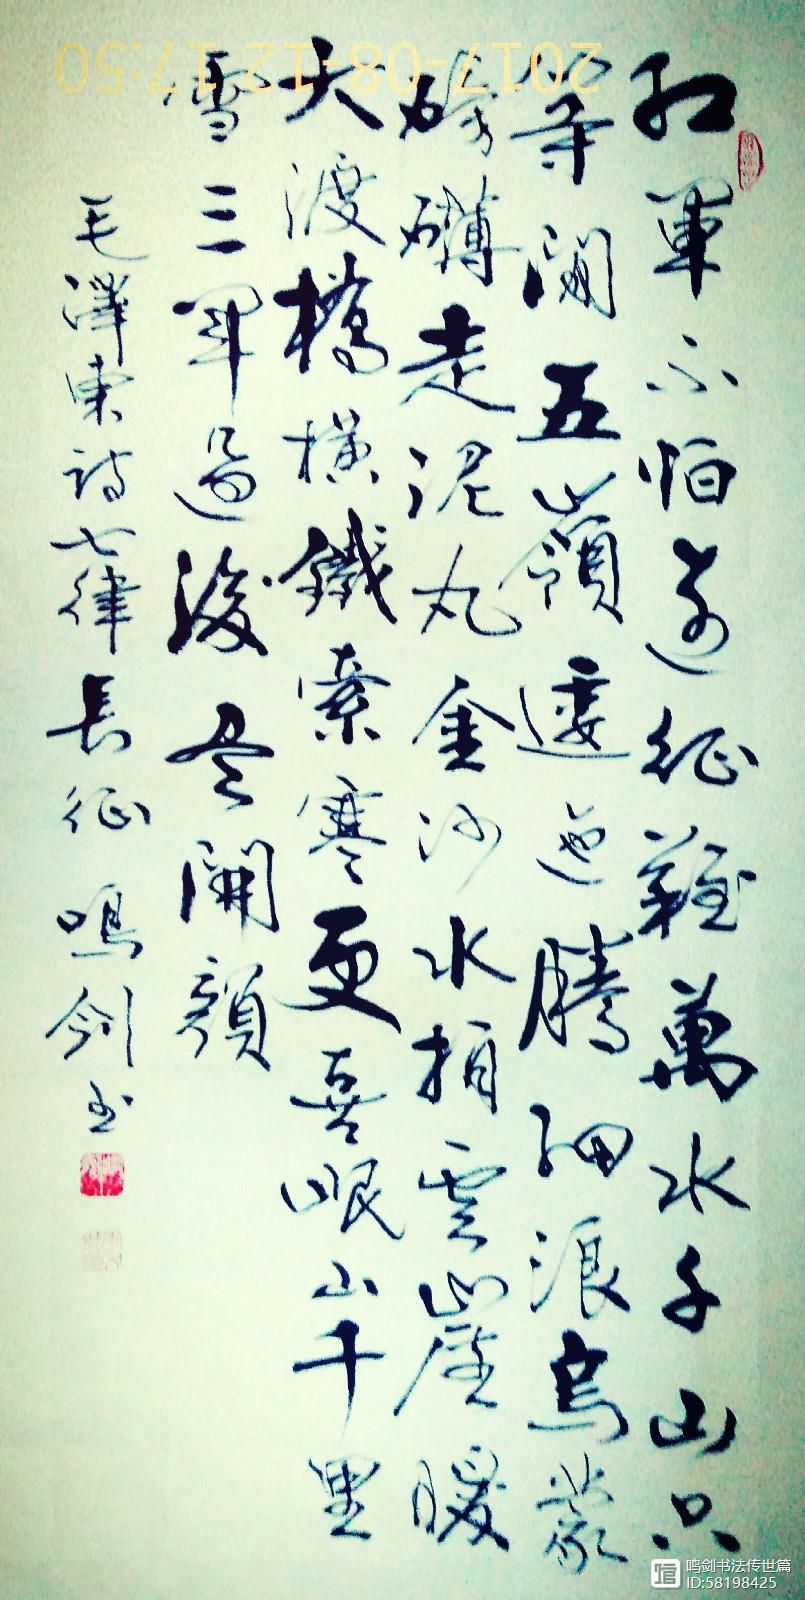 紅軍不怕遠征難萬水千山只
等閑五嶺逶迤騰細浪烏蒙
磅礴走泥丸金沙水拍雲崖暖
大渡橋橫鐵索寒更喜岷山千里
雪三軍過後尽開顏
毛澤東詩七律長征 鳴剑书
2017-08-12 17:50
鸣剑书法传世篇
ID:58198425